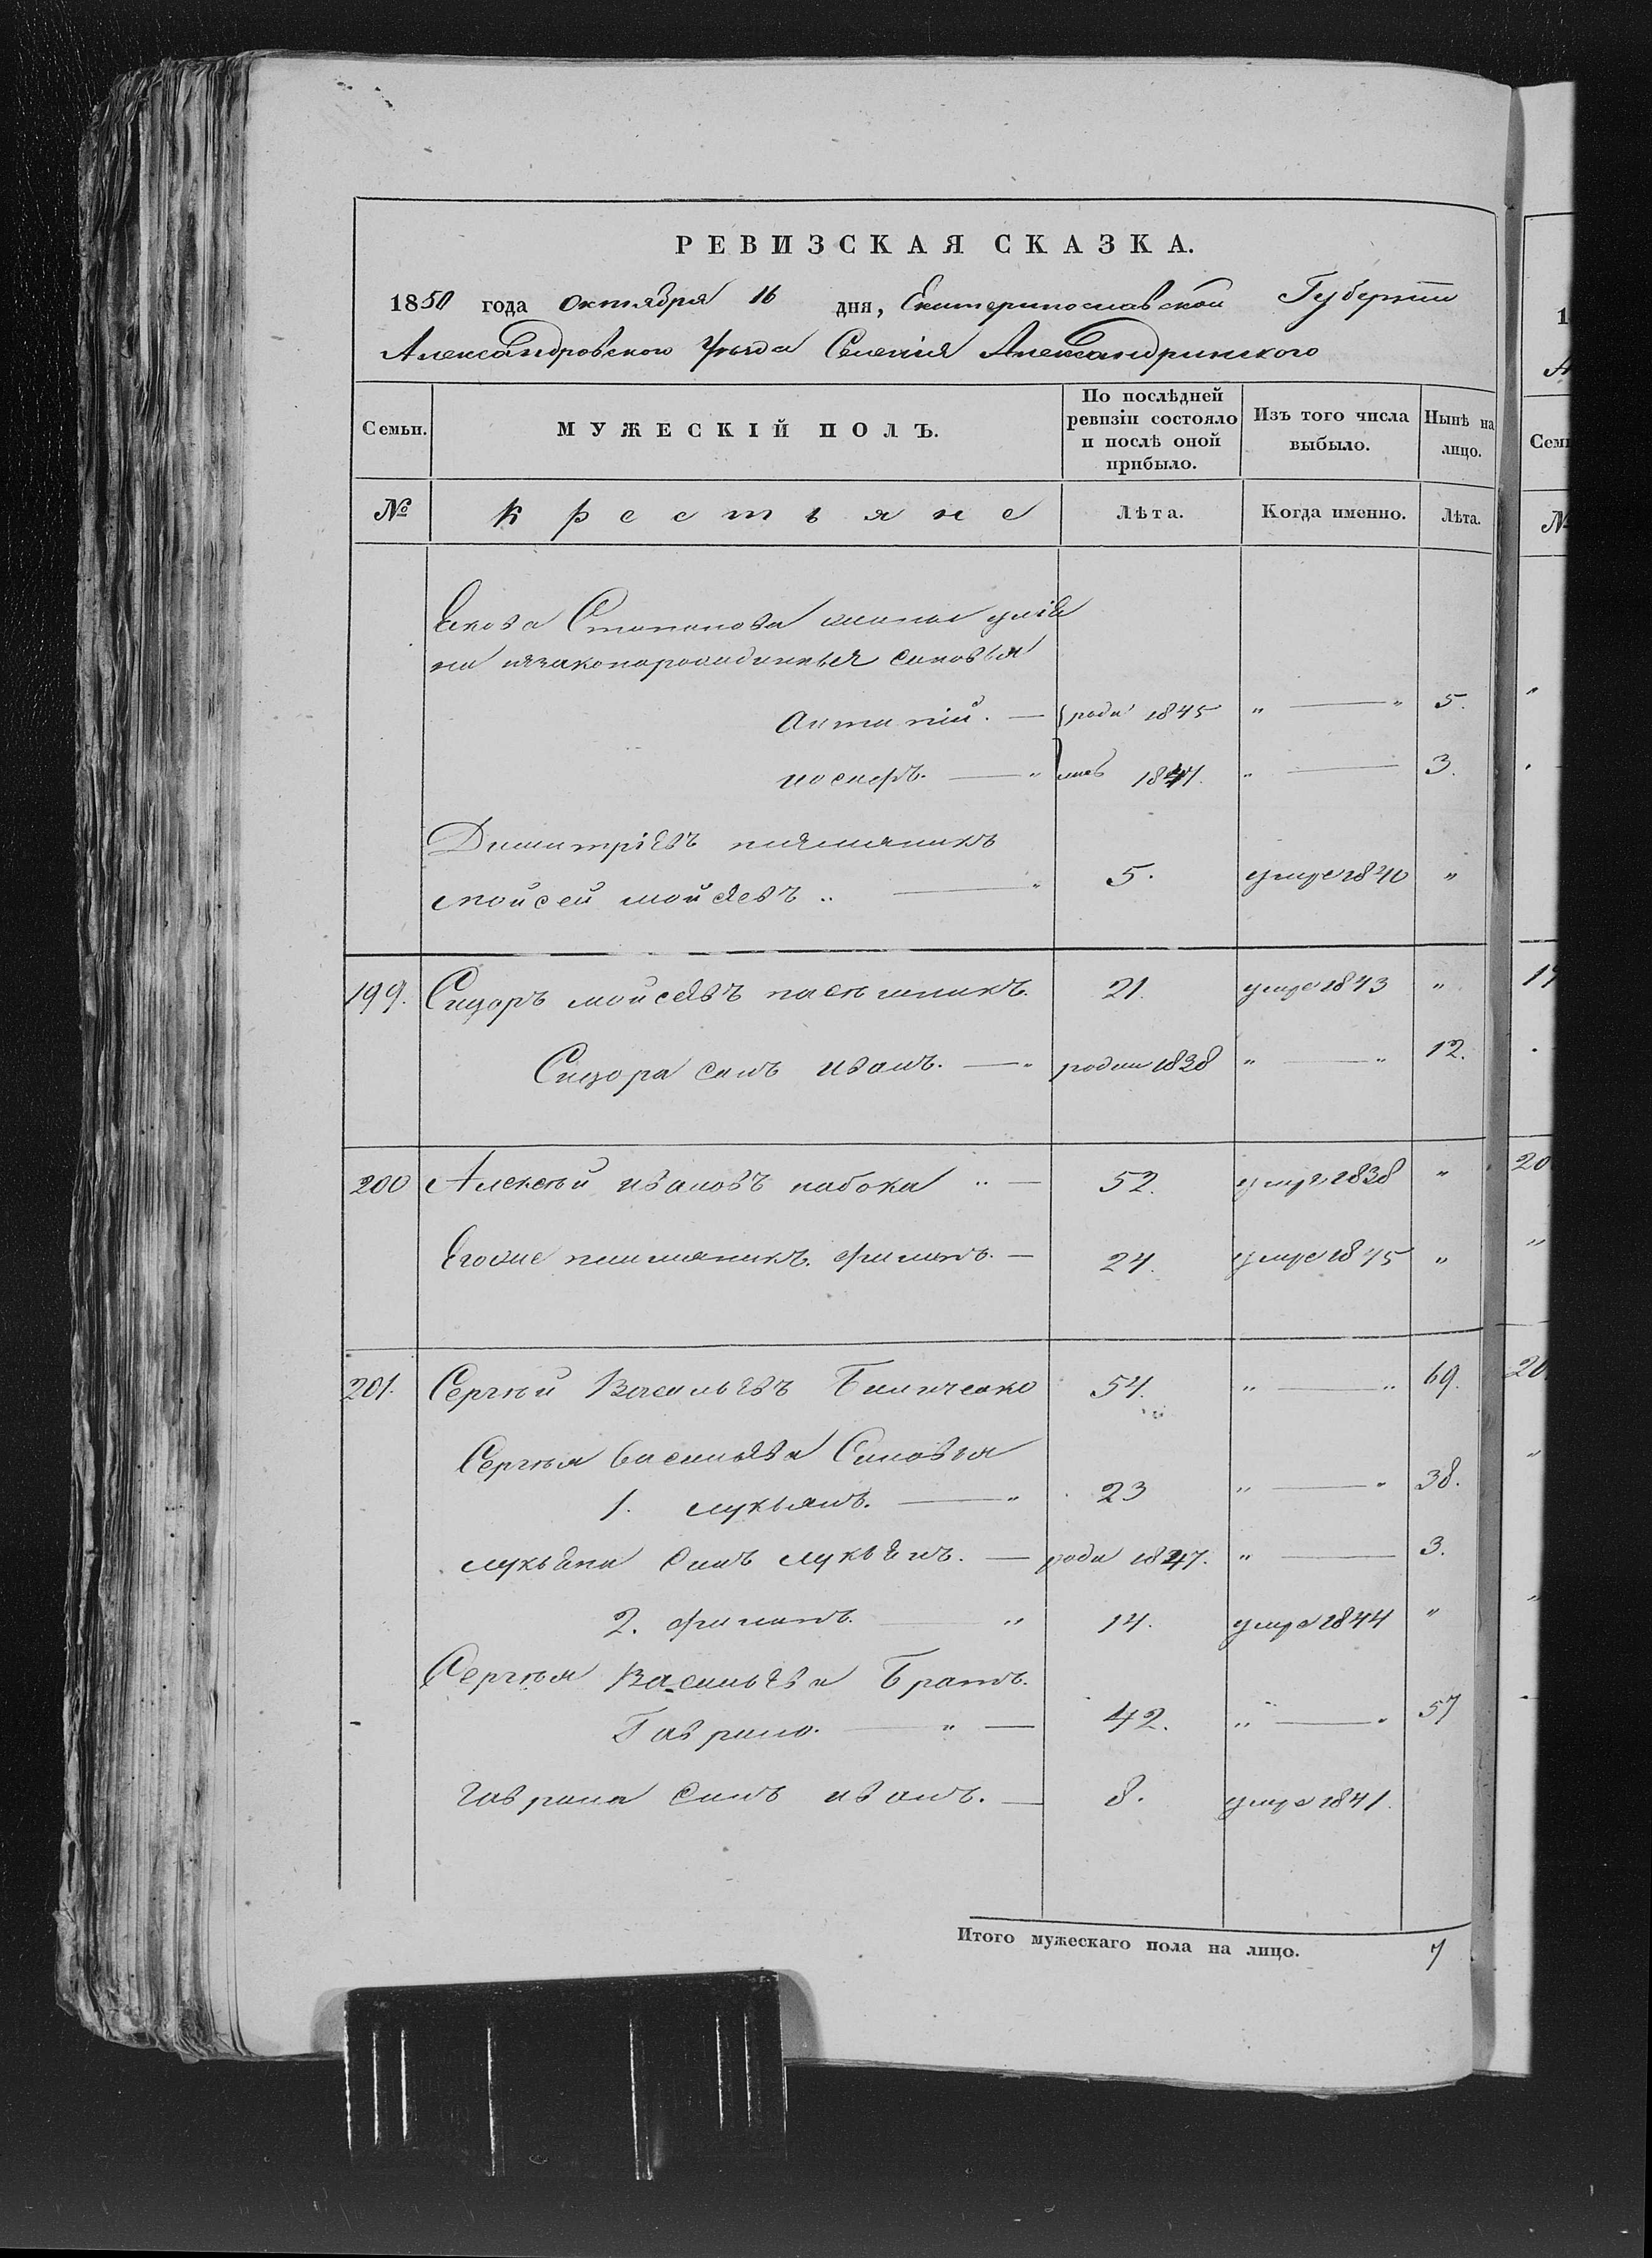 РЕВИЗСКАЯ СКАЗКА.
1850 года Октября 16 дня, Екатеринославской Губерніи
Александровского Уѣзда Селенія Александринского
Семьи. МУЖЕСКІЙ ПОЛЪ. По послѣдней ревизіи состояло и послѣ оной прибыло. Изъ того числа выбыло. Нынѣ на лицо.
№ Крестьяне Лѣта. Когда именно. Лѣта.
Степанова
незаконорожденныя синовья
Антипій. — роди 1845 " — " 5.
иосифъ. — " 1847. " — 3.
Димитріевъ племяникъ
мойсей мойсеевъ " — " 5. умре 1840 "
199. Сидоръ мойсеевъ пасѣшникъ. 21. умре 1843 "
Сидора синъ иванъ. — " родил 1838 " — " 12.
200 Алексѣй ивановъ набока " — 52. умре 1838 "
Егоже племяникъ филипъ. — 24. умре 1845 "
201. Сергѣй Васильевъ 54. " — " 69.
Сергѣя васильева Синовья
1. лукьянъ. — " 23 " — " 38.
лукьяна синъ лукьянъ. — роди 1847. " — 3.
2. филипъ. — " 14. умре 1844 "
Сергѣя Васильева Братъ.
Гаврило. — " — 42. " — " 57
гаврила синъ иванъ. — 8. умре 1841.
Итого мужескаго пола на лицо. 7